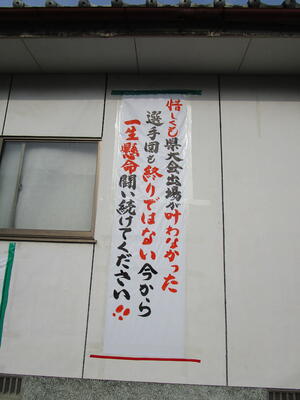 惜しくも県大会出場が叶わなかった
選手団も終りではない今から
一生懸命闘い続けてください!!